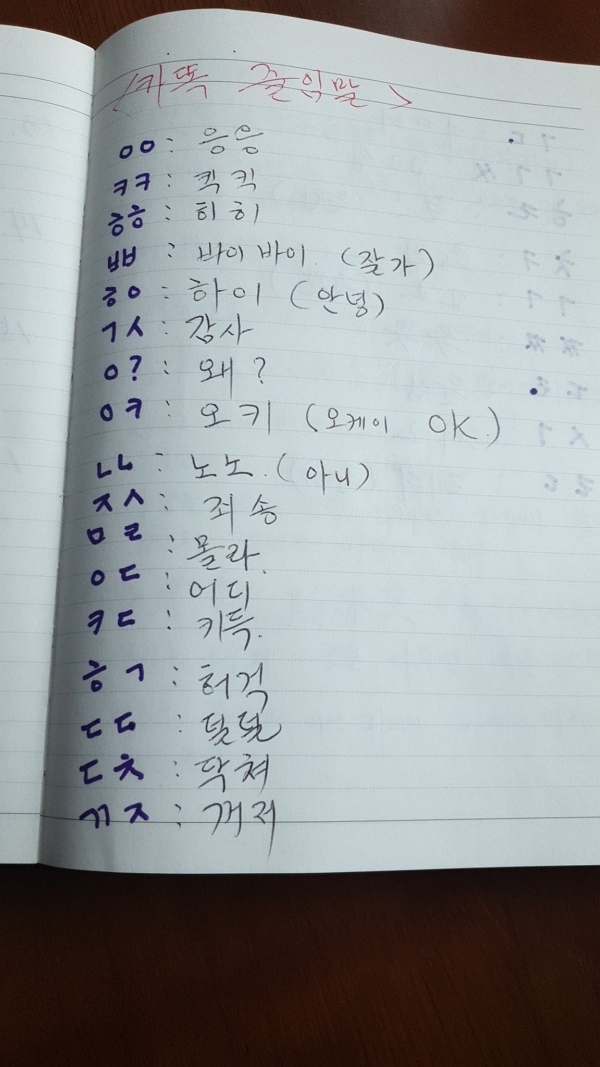 <카똑 줄임말>
ㅇㅇ : 응응
ㅋㅋ : 킥킥
ㅎㅎ : 히히
ㅃㅃ : 바이바이. (잘가)
ㅎㅇ : 하이 (안녕)
ㄱㅅ : 감사
ㅇ? : 왜?
ㅇㅋ : 오키 (오케이 OK.)
ㄴㄴ : 노노. (아니)
ㅈㅅ : 죄송
ㅁㄹ : 몰라.
ㅇㄷ : 어디
ㅋㄷ : 키득.
ㅎㄱ : 허걱
ㄷㄷ : 덜덜
ㄷㅊ : 닥쳐
ㄲㅈ : 꺼져